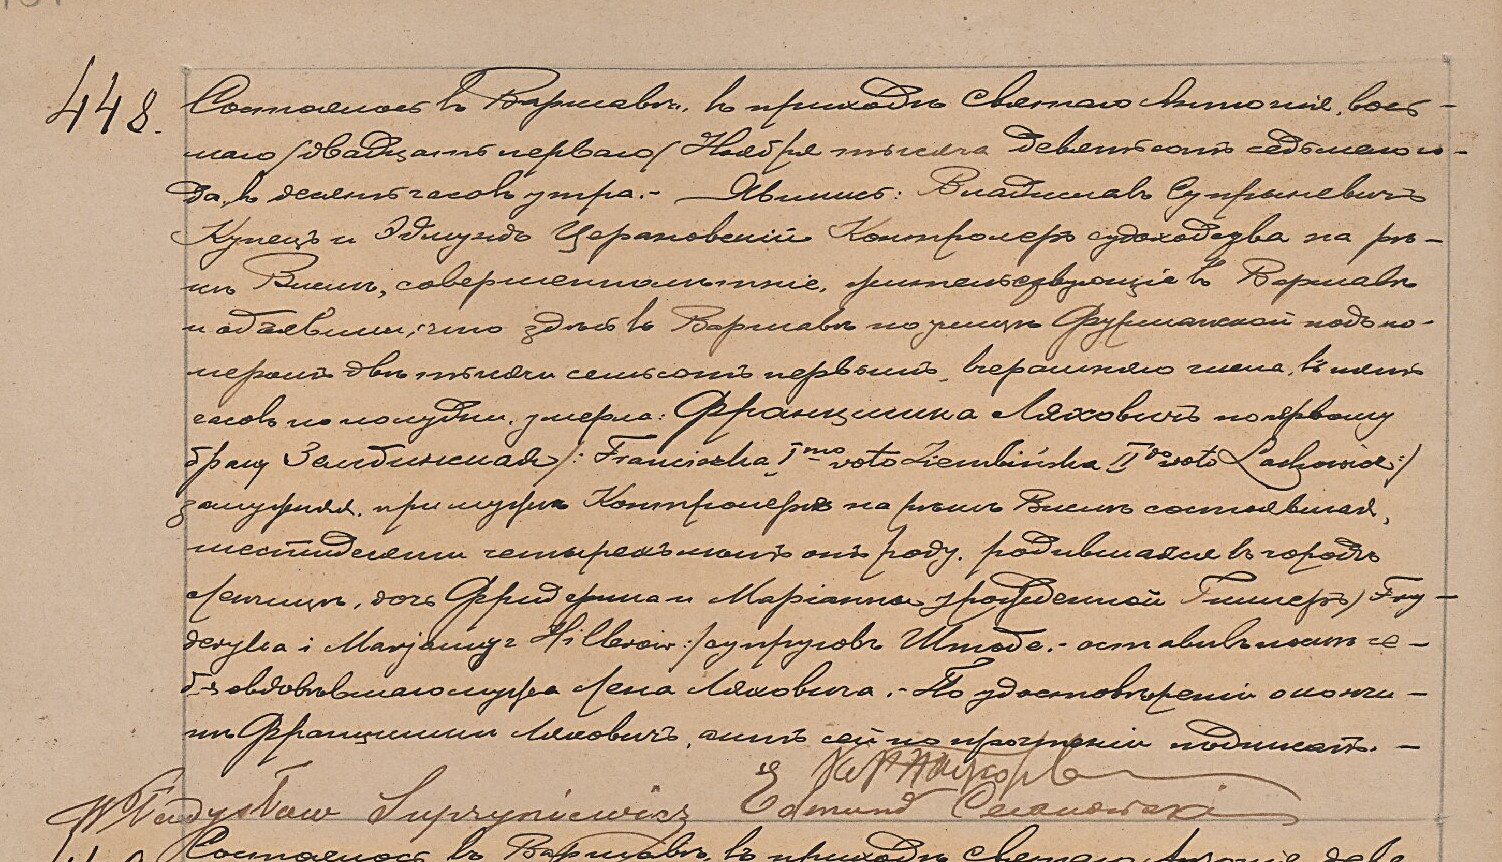 448.
Состоялось въ Варшавѣ, въ приходѣ святаго Антонія, вось-
маго /двадцать перваго/ Ноября тысяча девятьсотъ седьмаго го-
да, въ десять часовъ утра.- Явились: Владиславъ Супрыневичъ
Купецъ и Эдмундъ Церановскій Контролеръ судоходства на рѣ-
кѣ Вислѣ, совершеннолѣтніе, жительствующіе въ Варшавѣ
и объявили, что здѣсь въ Варшавѣ по улицѣ Фурманской подъ но-
меромъ двѣ тысячи семьсотъ первымъ, вчерашняго числа, въ пять
часовъ по полудни, умерла: Францишка Ляховичъ по первому
браку Зембинская /: Franciszka Imo voto Ziembińska IIdo voto Lachowicz :/
замужняя, при мужѣ Контролерѣ на рѣкѣ Вислѣ состоявшая,
шестидесяти четырехъ лѣтъ отъ роду, родившаяся въ городѣ
Ленчицѣ, дочь Фридерика и Маріанны урожденной Гиллеръ / Fry-
deryka i Marjanny z Hillerów :/ супруговъ Штоде.- оставивъ послѣ се-
бя овдовѣвшаго мужа Лена Ляховича.- По удостовѣреніи о кончи-
нѣ Францишки Ляховичъ, актъ сей по прочтеніи подписанъ. -
Władysław Supryniewicz Edmund Ceranowski
Состоялось въ Варшавѣ, въ приходѣ святаго Антонія, девя